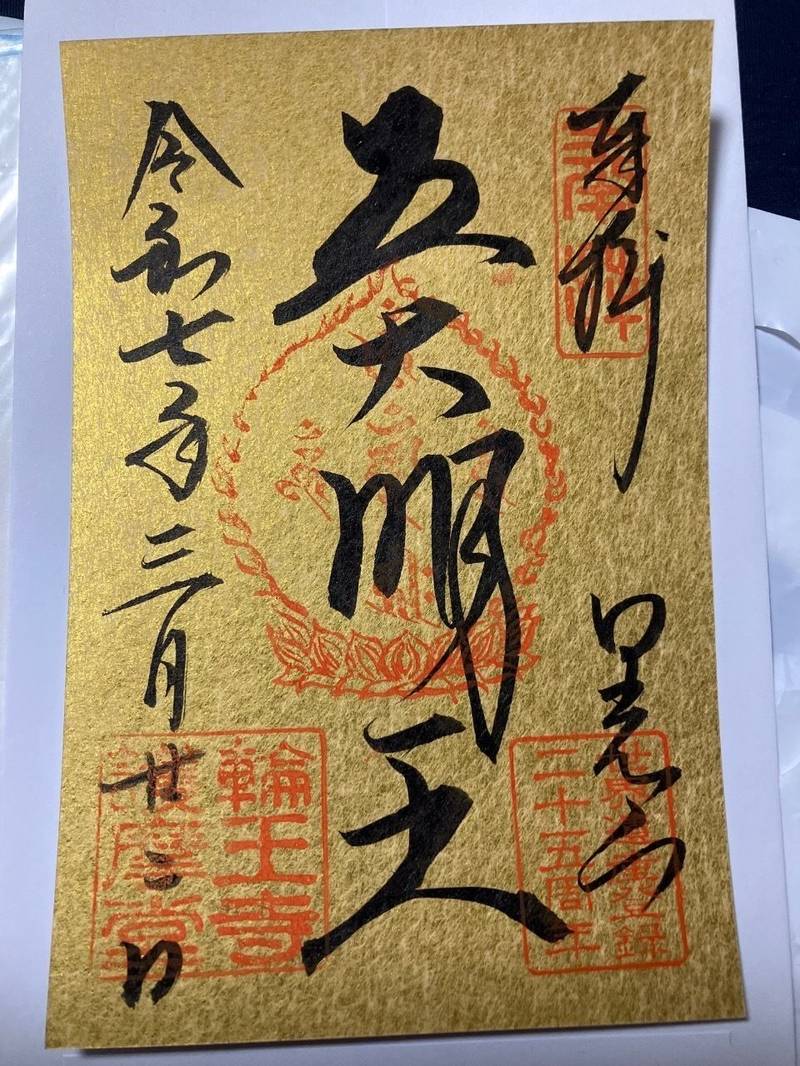 奉拝
日光山
世界遺産登録
二十五周年
五大明王
輪王寺
護摩堂
令和七年三月廿二日